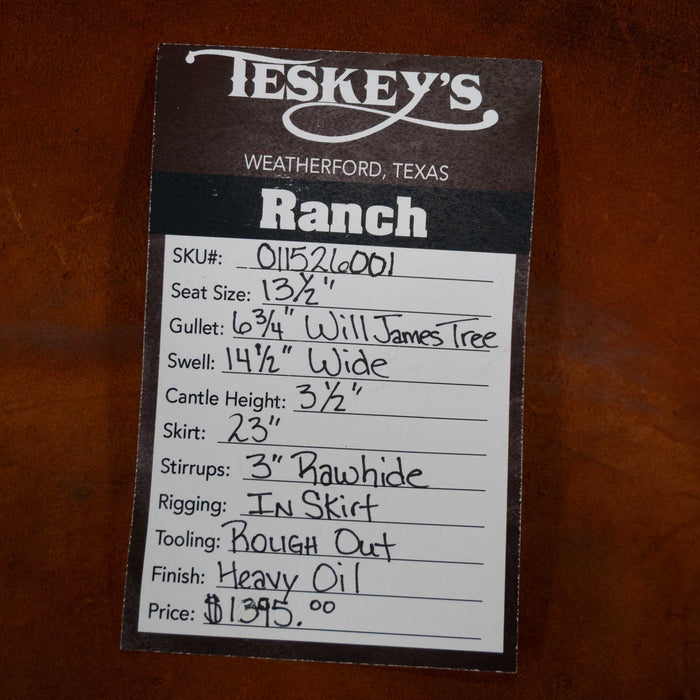 TESKEY'S
WEATHERFORD, TEXAS
Ranch
SKU#: 011526001
Seat Size: 13½"
Gullet: 6¾" Will James Tree
Swell: 14½" Wide
Cantle Height: 3½"
Skirt: 23"
Stirrups: 3" Rawhide
Rigging: IN SKirt
Tooling: ROUGH Out
Finish: Heavy Oil
Price: $1395.00